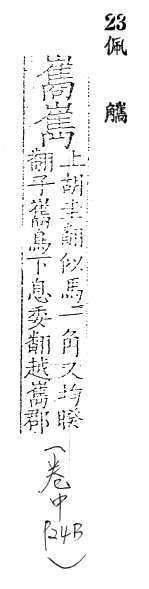 23佩觿
巂嶲
上胡圭翻似馬二角又均睽
翻子巂鳥下息委翻越嶲郡
(卷中124B)